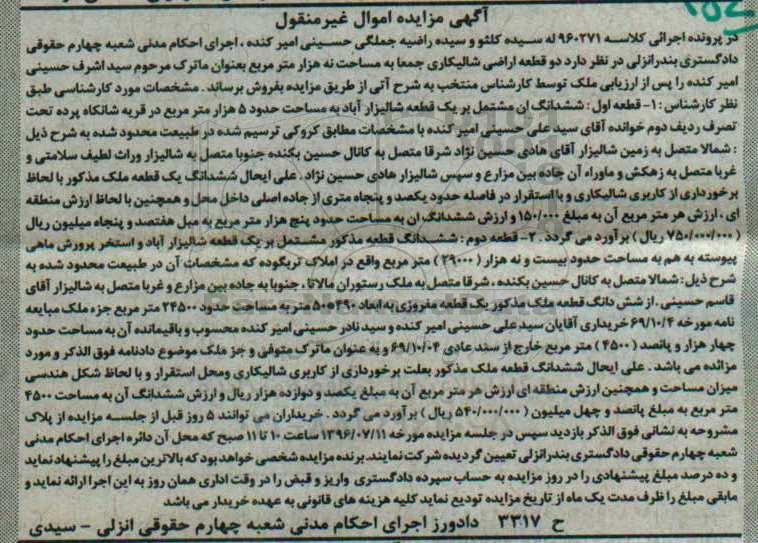 152
آگهی مزایده اموال غیرمنقول
در پرونده اجرائی کلاسه ۹۶۰۲۷۱ له سیده کلثو و سیده راضیه جملگی حسینی امیر کنده ، اجرای احکام مدنی شعبه چهارم حقوقی
دادگستری بندرانزلی در نظر دارد دو قطعه اراضی شالیکاری جمعا به مساحت نه هزار متر مربع بعنوان ماترک مرحوم سید اشرف حسینی
امیر کنده را پس از ارزیابی ملک توسط کارشناس منتخب به شرح آتی از طریق مزایده بفروش برساند . مشخصات مورد کارشناسی طبق
نظر کارشناس : ۱- قطعه اول : ششدانگ ان مشتمل بر یک قطعه شالیزار آباد به مساحت حدود ۵ هزار متر مربع در قریه شانکاه پرده تحت
تصرف ردیف دوم خوانده آقای سید علی حسینی امیر کنده با مشخصات مطابق کروکی ترسیم شده در طبیعت محدود شده به شرح ذیل
: شمالا متصل به زمین شالیزار آقای هادی حسین نژاد شرقا متصل به کانال حسین بکنده جنوبا متصل به شالیزار وراث لطیف سلامتی و
غربا متصل به زهکش و ماوراء آن جاده بین مزارع و سپس شالیزار هادی حسین نژاد . علی ایحال ششدانگ یک قطعه ملک مذکور با لحاظ
برخورداری از کاربری شالیکاری و با استقرار در فاصله حدود یکصد و پنجاه متری از جاده اصلی داخل محل و همچنین با لحاظ ارزش منطقه
ای ، ارزش هر متر مربع آن به مبلغ ۱۵۰/۰۰۰ و ارزش ششدانگ ان به مساحت حدود پنج هزار متر مربع به مبل هفتصد و پنجاه میلیون ریال
( ۷۵۰/۰۰۰/۰۰۰ ریال ) برآورد می گردد . ۲- قطعه دوم : ششدانگ قطعه مذکور مشتمل بر یک قطعه شالیزار آباد و استخر پرورش ماهی
پیوسته به هم به مساحت حدود بیست و نه هزار ( ۲۹۰۰۰ ) متر مربع واقع در املاک تربگوده که مشخصات آن در طبیعت محدود شده به
شرح ذیل : شمالا متصل به کانال حسین بکنده ، شرقا متصل به ملک رستوران مالاتا ، جنوبا به جاده بین مزارع و غربا متصل به شالیزار آقای
قاسم حسینی . از شش دانگ قطعه ملک مذکور یک قطعه مفروزی به ابعاد ۴۹۰*۵۰ متر به مساحت حدود ۲۴۵۰۰ متر مربع جزء ملک مبایعه
نامه مورخه ۶۹/۱۰/۴ خریداری آقایان سید علی حسینی امیر کنده و سید نادر حسینی امیر کنده محسوب و باقیمانده آن به مساحت حدود
چهار هزار و پانصد ( ۴۵۰۰ ) متر مربع خارج از سند عادی ۶۹/۱۰/۰۴ و به عنوان ماترک متوفی و جز ملک موضوع دادنامه فوق الذکر و مورد
مزائده می باشد . علی ایحال ششدانگ قطعه ملک مذکور بعلت برخورداری از کاربری شالیکاری ومحل استقرار و با لحاظ شکل هندسی
میزان مساحت و همچنین ارزش منطقه ای ارزش هر متر مربع آن به مبلغ یکصد و دوازده هزار ریال و ارزش ششدانگ آن به مساحت ۴۵۰۰
متر مربع به مبلغ پانصد و چهل میلیون ( ۵۴۰/۰۰۰/۰۰۰ ریال ) برآورد می گردد . خریداران می توانند ۵ روز قبل از جلسه مزایده از پلاک
مشروحه به نشانی فوق الذکر بازدید سپس در جلسه مزایده مورخه ۱۳۹۶/۰۷/۱۱ ساعت ۱۰ تا ۱۱ صبح که محل آن دائره اجرای احکام مدنی
شعبه چهارم حقوقی دادگستری بندرانزلی تعیین گردیده شرکت نمایند. برنده مزایده شخصی خواهد بود که بالاترین مبلغ را پیشنهاد نماید
و ده درصد مبلغ پیشنهادی را در روز مزایده به حساب سپرده دادگستری واریز و قبض را در وقت اداری همان روز به این اجرا ارائه نماید و
مابقی مبلغ را ظرف مدت یک ماه از تاریخ مزایده تودیع نماید کلیه هزینه های قانونی به عهده خریدار می باشد
ح ۳۳۱۷ دادورز اجرای احکام مدنی شعبه چهارم حقوقی انزلی – سیدی